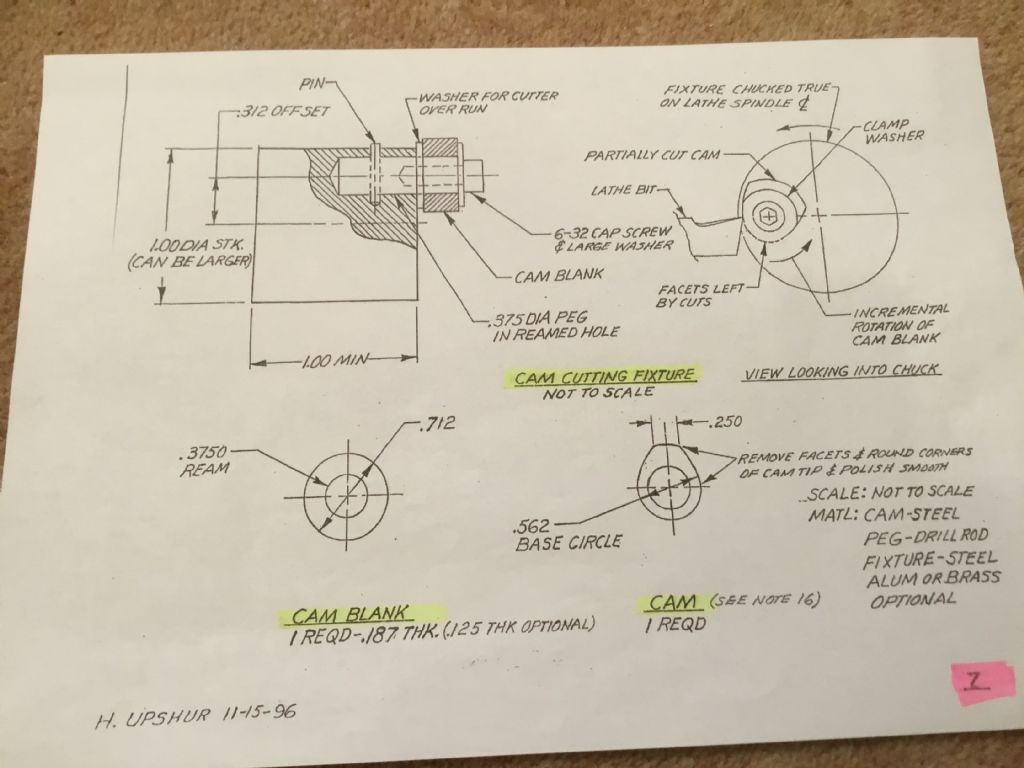 PIN
.312 OFFSET
WASHER FOR CUTTER
OVER RUN
1.00 DIA STK.
(CAN BE LARGER)
6-32 CAP SCREW
& LARGE WASHER
CAM BLANK
.375 DIA PEG
IN REAMED HOLE
1.00 MIN
FIXTURE CHUCKED TRUE
ON LATHE SPINDLE ℄
CLAMP
WASHER
PARTIALLY CUT CAM
LATHE BIT
FACETS LEFT
BY CUTS
INCREMENTAL
ROTATION OF
CAM BLANK
CAM CUTTING FIXTURE
NOT TO SCALE
VIEW LOOKING INTO CHUCK
.712
.3750
REAM
CAM BLANK
1 REQD-.187 THK. (.125 THK OPTIONAL)
.250
REMOVE FACETS & ROUND CORNERS
OF CAM TIP & POLISH SMOOTH
.562
BASE CIRCLE
CAM (SEE NOTE 16)
1 REQD
SCALE: NOT TO SCALE
MATL: CAM-STEEL
PEG-DRILL ROD
FIXTURE-STEEL
ALUM OR BRASS
OPTIONAL
H. UPSHUR 11-15-96